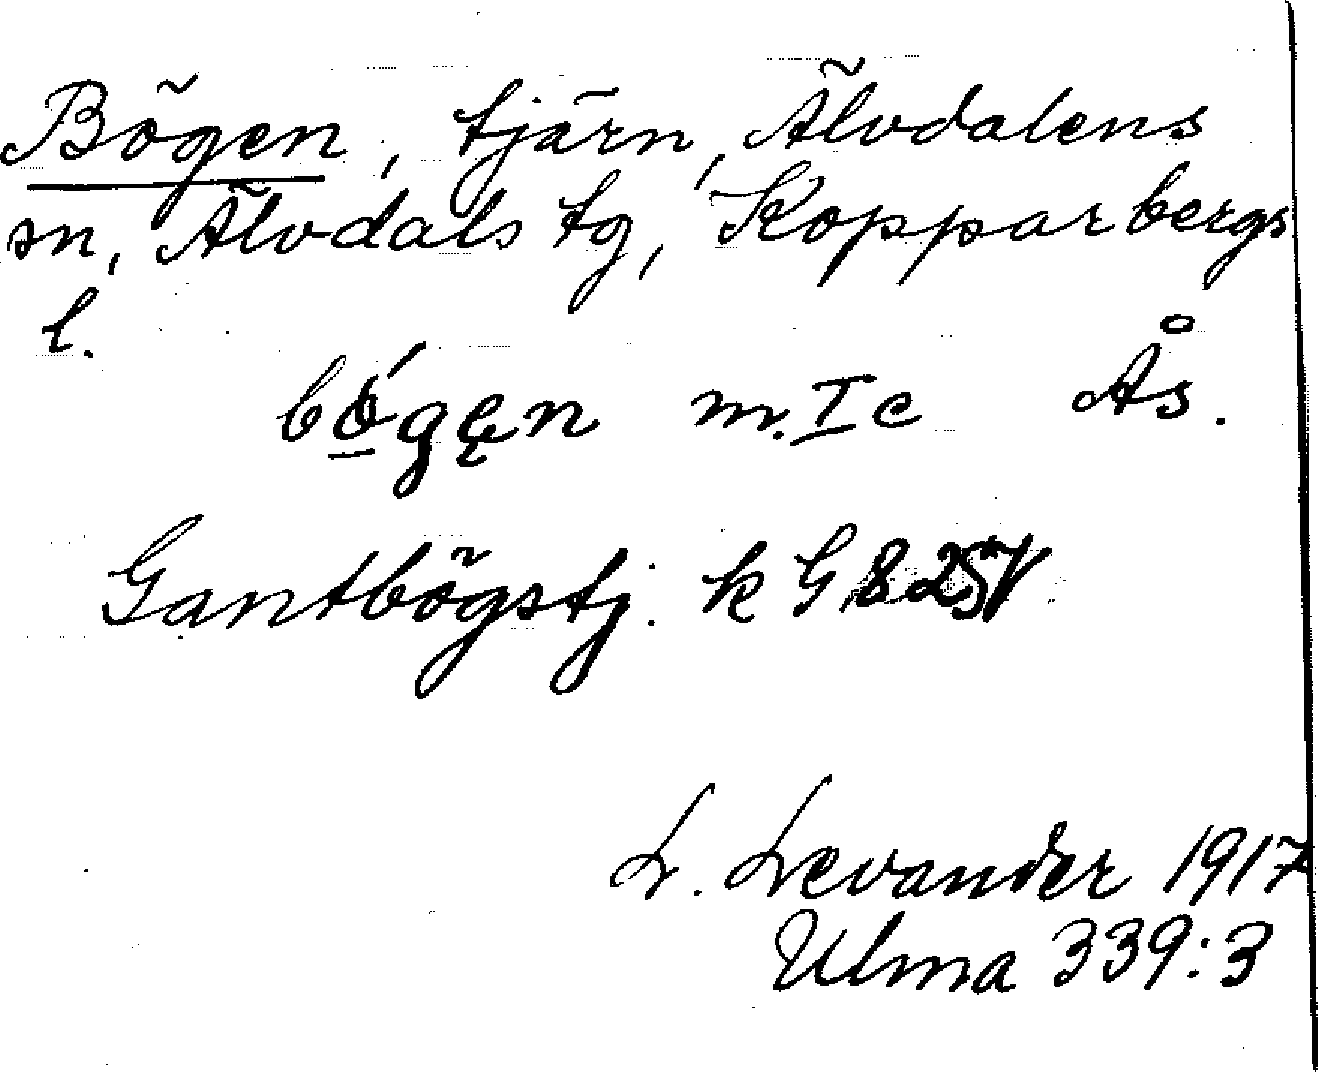 Bögen, tjärn, Älvdalens
sn, Älvdals tg, Kopparbergs
l.
bǫ́gęn m. I c Ås.
Gantbögstj. k G 8 25 V
L. Levander 1917
Ulma 339:3